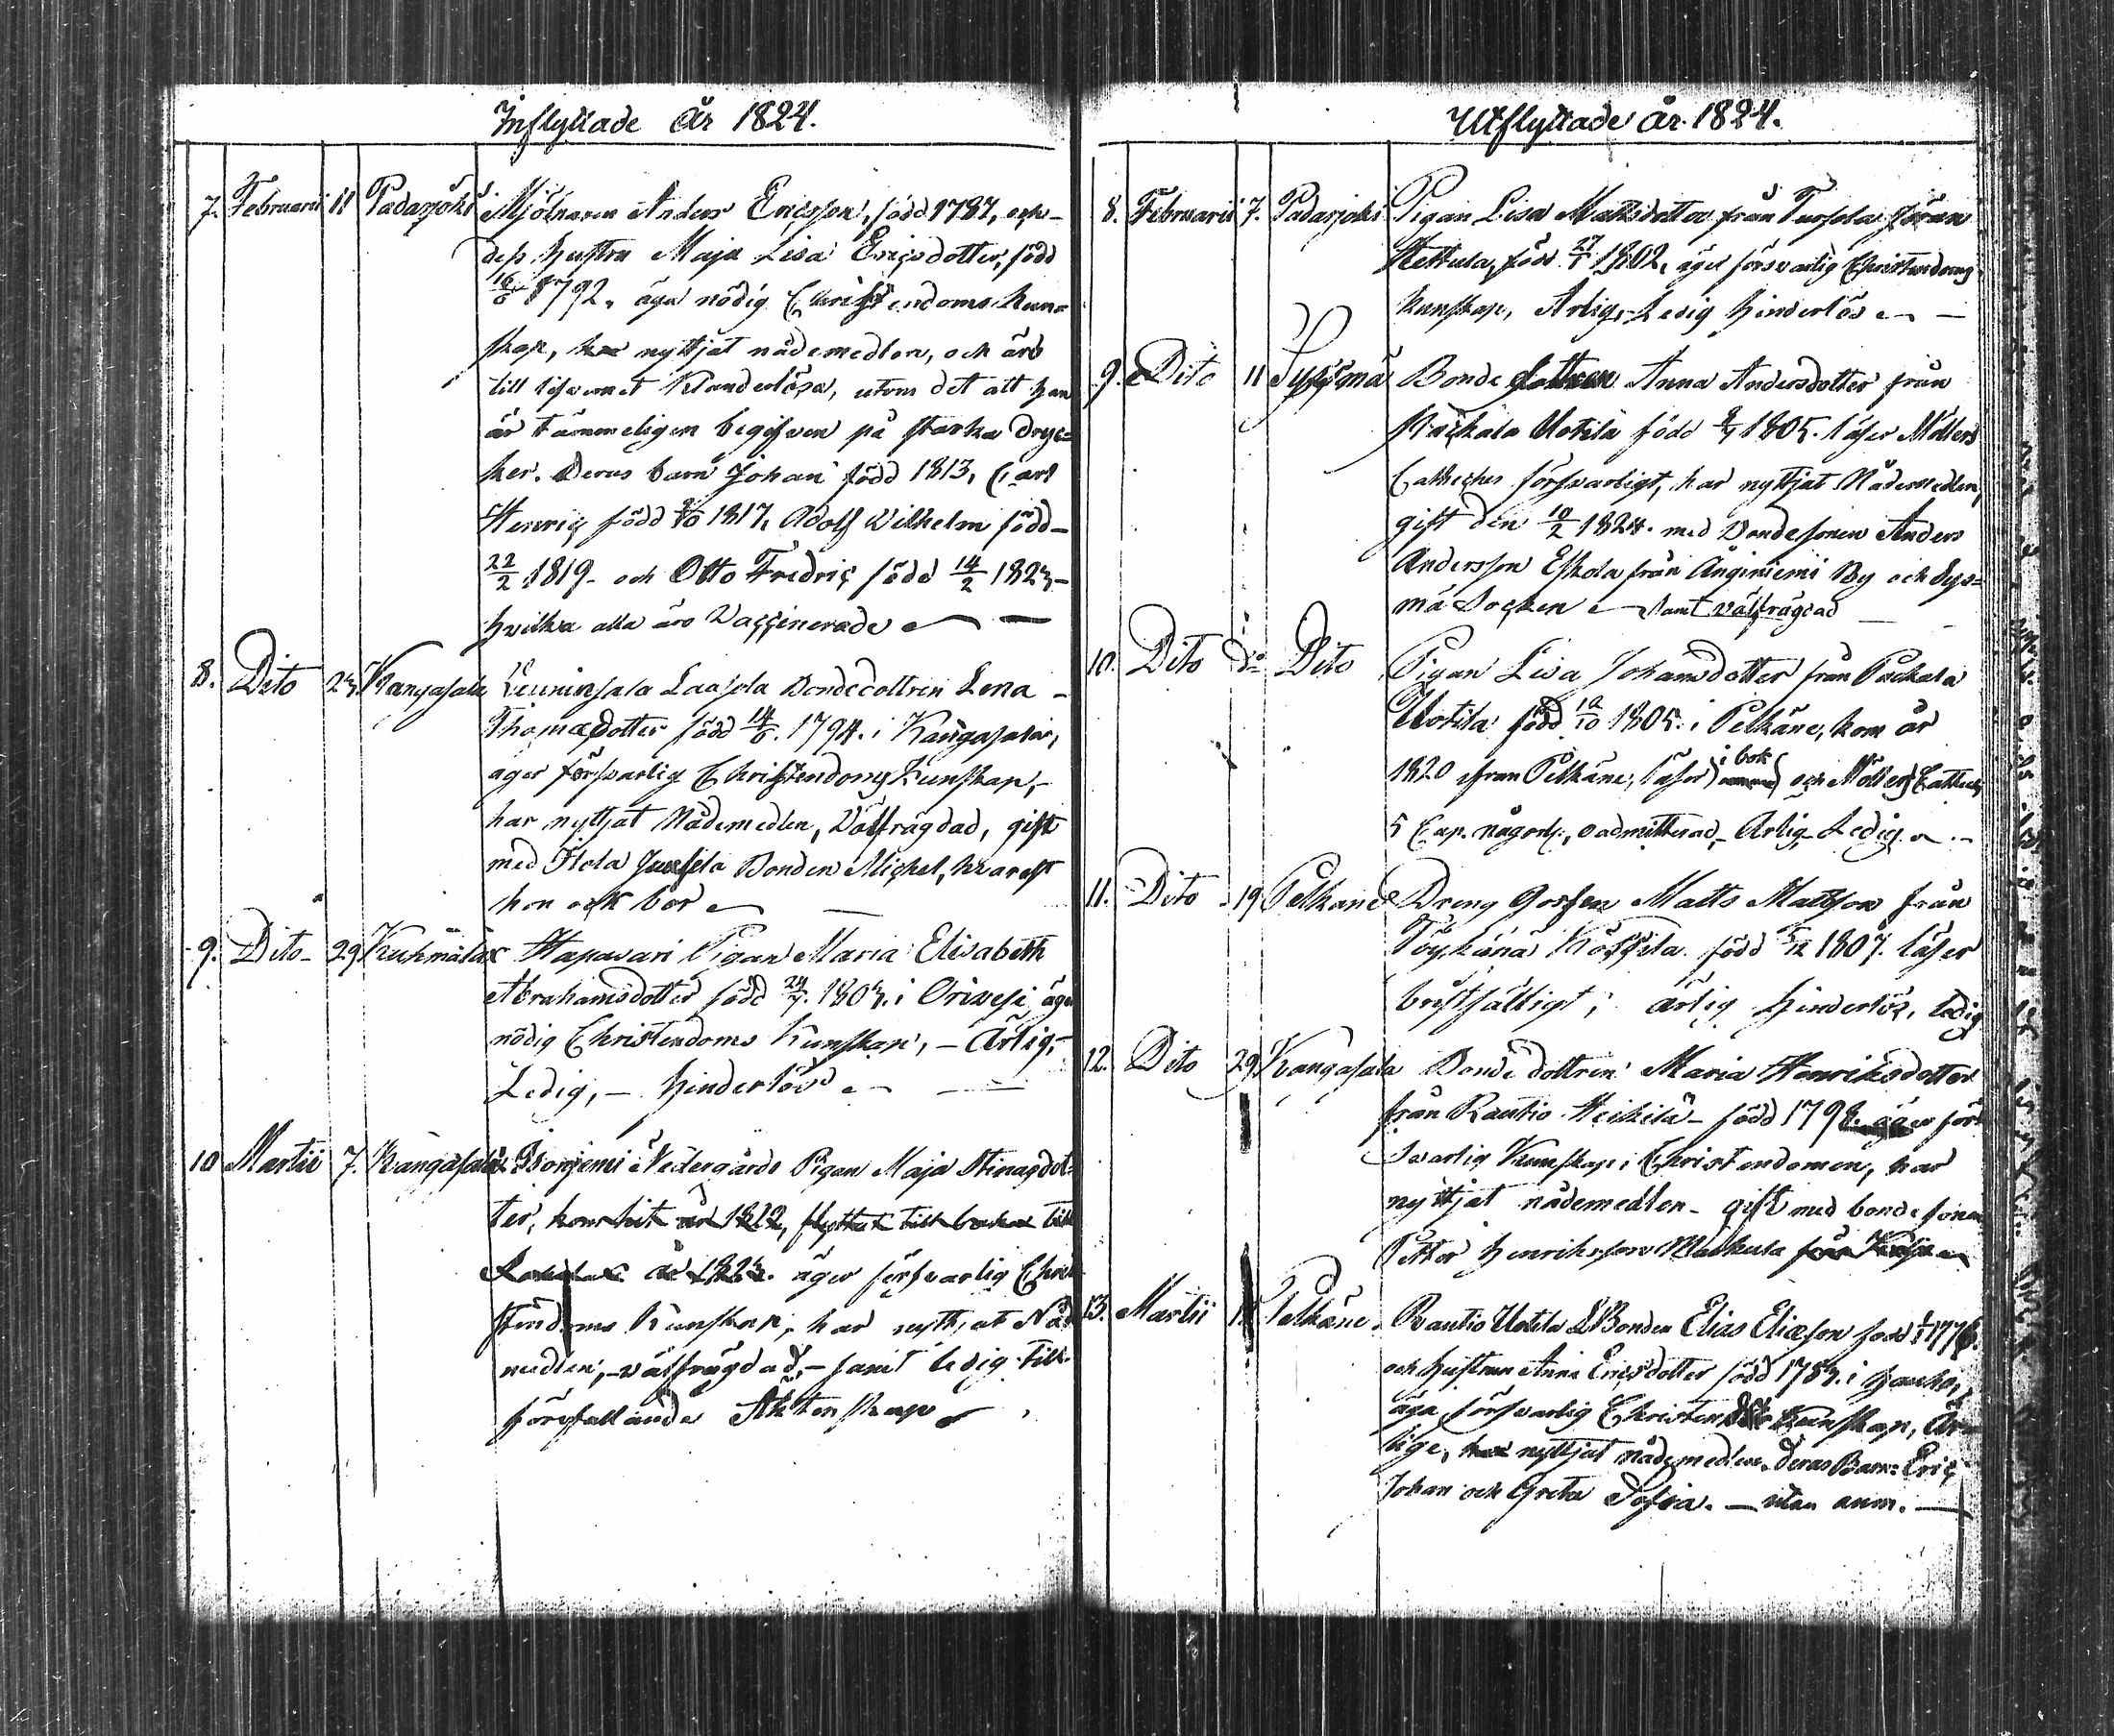 Inflyttade År 1824.
7. Februarii 11 Padasjoki Mjölnaren Anders Ericsson, född 1787, och
dess hustru Maja Lisa Ericsdotter, född
1792, äga nödig Christendoms kun-
skap, nyttjat nådemedlen, och äro
till lefvernet Klanderlösa, utom det att han
är tämmeligen begifven på starka dryc-
ker. Deras barn Johan född 1813, Carl
Henric född 1817, Adolf Wilhelm född
22/2 1819 och Otto Fredric född 14/2 1823
hvilka alla äro Vaccinerade
8. Dito 23. Kangasala Laasola Bondedottren Lena
Thomasdotter född 1794. i Kangasala,
äger försvarlig Christendoms Kunskap,
har nyttjat Nådemedlen, Välfrägdad, gift
med Bonden Michel, hvarest
hon ock bor
9. Dito 29 Kuhmalax Hapavari Pigan Maria Elisabeth
Abrahamsdotter född 1803. i Orivesi äger
nödig Christendoms Kunskap, – Ärlig,
Ledig, – hinderlös
10 Martii 7. Kangasala Nedergårds Pigan Maja Stinasdot-
ter, kom hit år 1822, flyttat tillbaka till
år 1823. äger försvarlig Chri-
stendoms Kunskap, har nyttjat Nåde
medlen, välfrägdad, – samt ledig till
förefallande Äktenskap
Utflyttade år 1824.
8. Februarii 7. Padasjoki Pigan Lisa Mattsdotter från
född 27/1 1802, äger försvarlig Christendoms
kunskap, Ärlig, Ledig hinderlös
9. Dito 11 Sysmä Bonde dottren Anna Andersdotter från
Uotila född 1805. läser Möllers
Catheches försvarligt, har nyttjat Nådemedlen,
gift den 10/2 1824. med Bondesonen Anders
Andersson Eskola från Änginiemi By och Sys-
mä Socken samt välfrägdad
10. Dito do Dito Pigan Lisa Johansdotter från
Uotila född 1805. i Pelkäne, kom år
1820 ifran Pelkäne, läser i bok och Möllers Cathech
5 Cap. någorl., oadmitterad, Ärlig Ledig
11. Dito 19 Pelkäne Dreng Gossen Matts Mattsson från
född 1807. läser
bristfälligt, ärlig hinderlös, ledig
12. Dito 29 Kangasala Bonde dottren Maria Henriksdotter
från Rautio Heikilä – född 1798. äger för-
svarlig Kunskap i Christendomen, har
nyttjat nådemedlen – gift med bondesonen
Petter Henriksson
13. Martii Pelkäne. Rautio Uotila Bonden Elias Eliasson född
och hustrun Anna Ericsdotter född 1783. i Hauho,
äga försvarlig Christendoms Kunskap, Är-
lige, nyttjat nådemedlen. Deras Barn: Eric
Johan och Greta Sofia. – utan anm. –